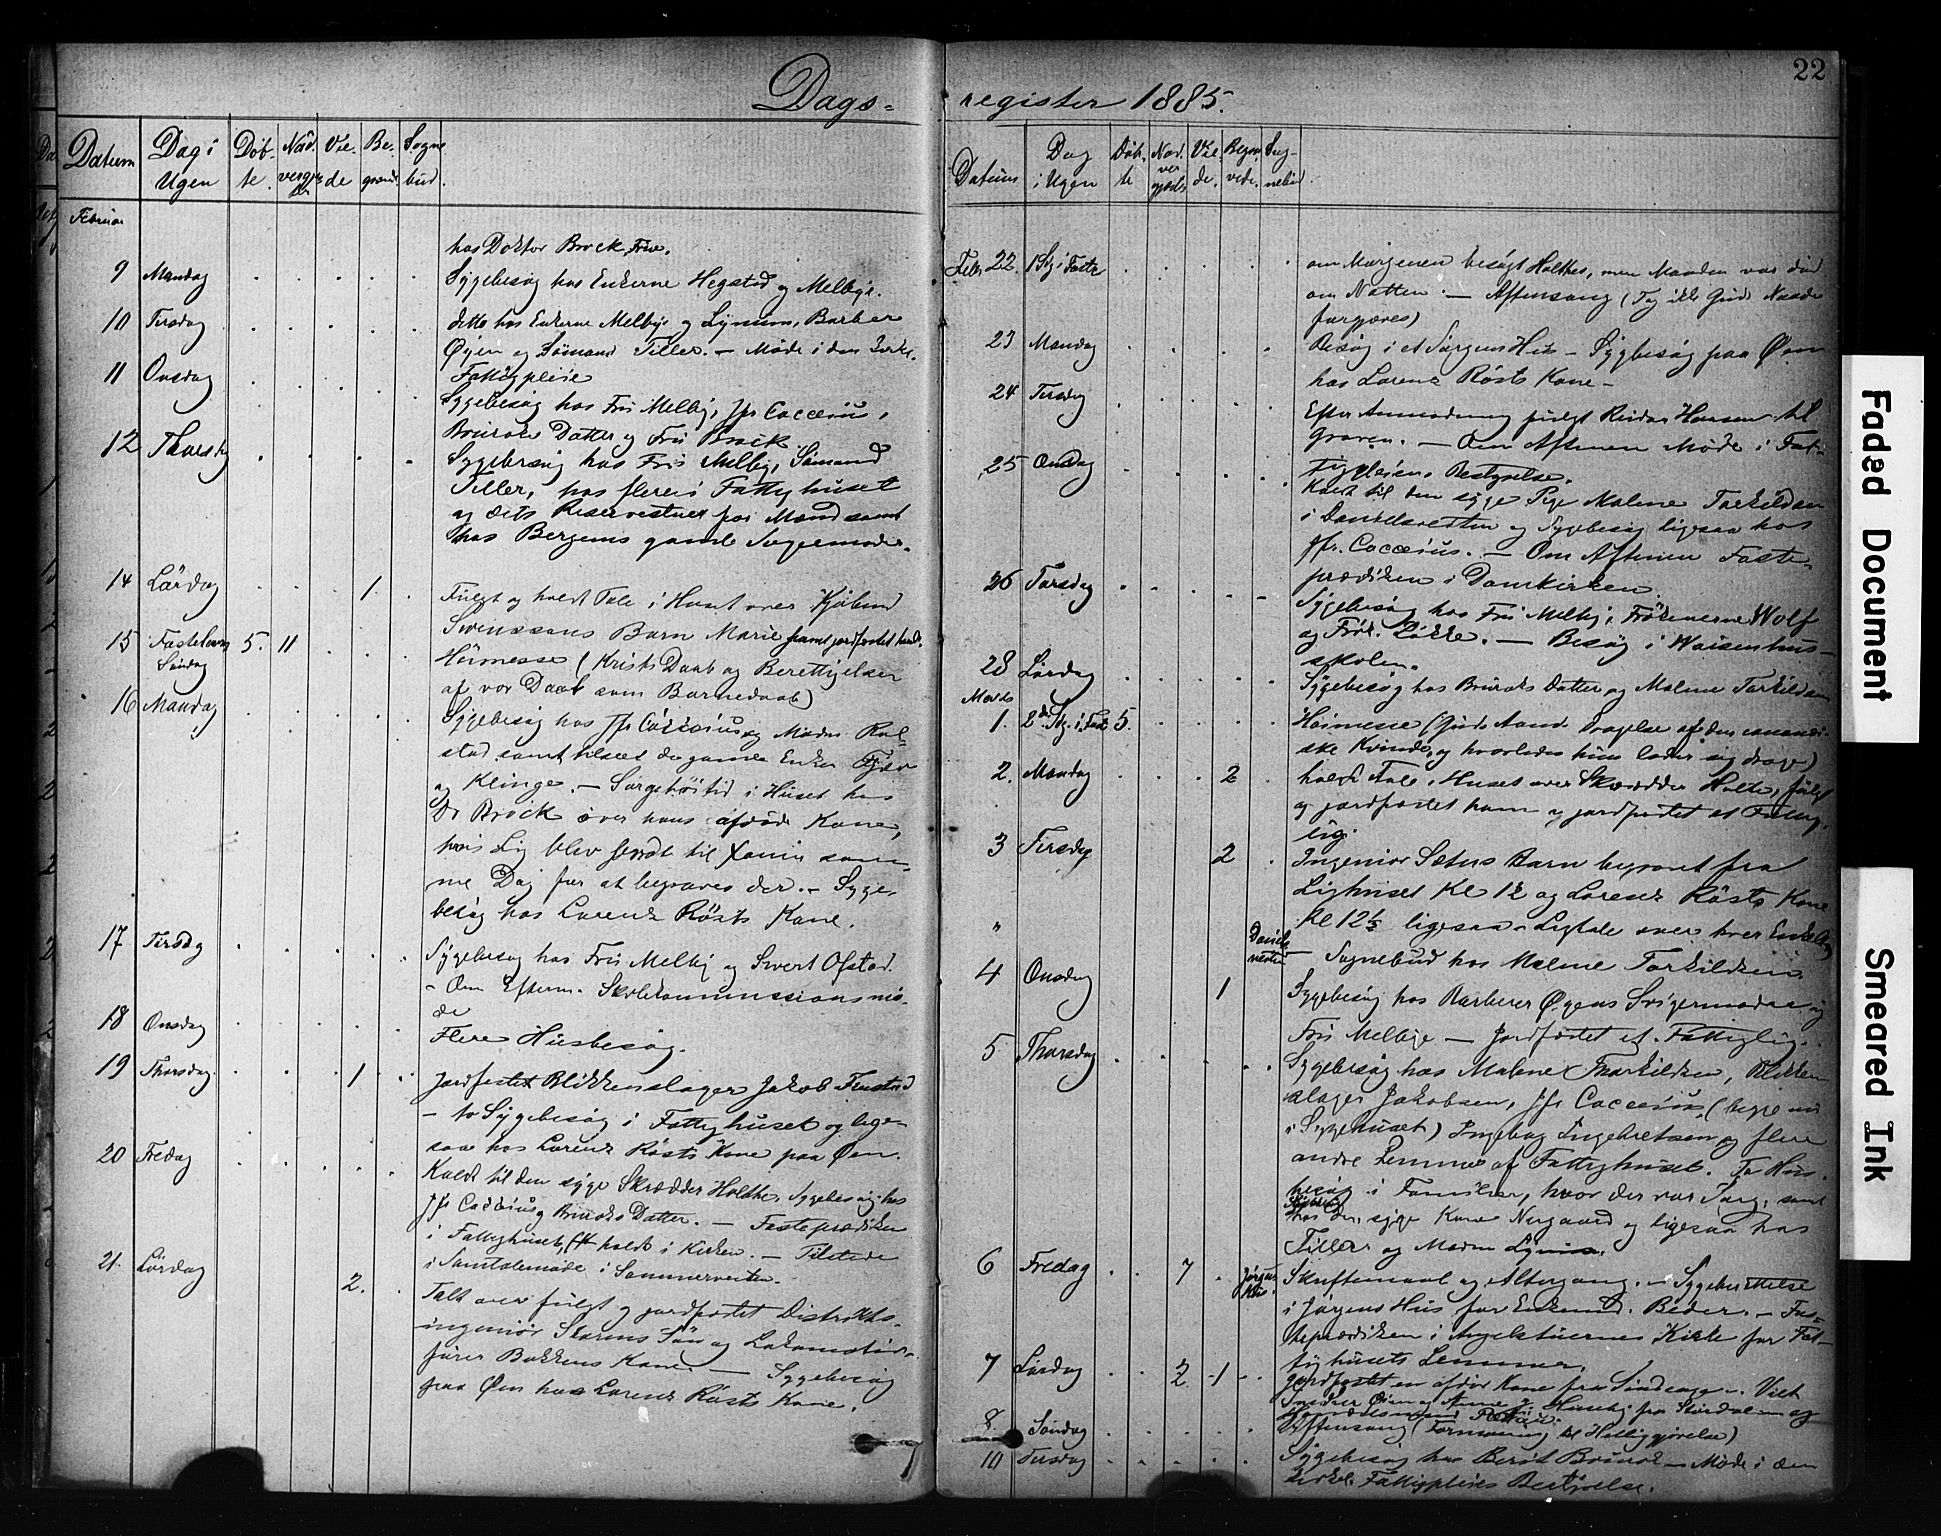 22
Dags-
register 1885.
Datum
Dag i Ugen
Døb- te.
Nad- vergjæs- te
Vie- de
Be- gravede
Sogne bud.
Februar
hos Doktor Brock, Frue.
9 Mandag
Sygebesøg hos Enkerne Hegstad og Melbye.
10 Tirsdag
ditto hos Enkerne Melbye og Lynum, Barber
Øyen og Sømand Tiller. — Møde i den
11 Onsdag
Fattigpleie
Sygebesøg hos Fru Melby, Jfr Coccesius,
Datter og Fru Brock.
12 Thorsdag
Sygebesøg hos Fru Melby, Sømand
Tiller, hos flere i Fattighuset
og dets Reservestuer for Mænd samt
hos Bergems gamle Svigermoder.
14 Lördag 1.
Fulgt og holdt Tale i Huset over
Svenssons Barn Marie samt jordfæstet
15 Fastelavns Søndag 5. 11
Höimesse (Kristi Daab og Berettigelsen
af vor Daab som Barnedaab)
16 Mandag
Sygebesøg hos Jfr Coccesius og Madm Rol-
stad samt tilseet de gamle Enker
og Klinge. — Sørgehøitid i Huset hos
Dr Brock over hans afdöde Kone,
hvis Lig blev sendt til sam-
me Dag for at begraves der. — Syge-
besøg hos Lorenz Rösts Kone.
17 Tirsdag
Sygebesøg hos Fru Melby og Sivert Ofstad.
— Om Efterm. Skolekommissionsmø-
de
18 Onsdag
Flere Husbesøg.
19 Thorsdag. 1
Jordfæstet Blikkenslager Jakob
— to Sygebesøg i Fattighuset og lige-
saa hos Lorenz Rösts Kone paa Øen.
20 Fredag
Kaldt til den syge Skrædder Holthe, Sygebesøg hos
Jfr Coccesius og Datter. — Fasteprædiken
i Fattighuset, holdt i Kirken. — Tilstede
i Samtalemøde i Sommerveiten.
21. Lördag 2.
Talt over fulgt og jordfæstet Distrikts-
ingeniør Skorens Søn og Lokomotiv-
fører Bakkens Kone. — Sygebesøg
paa Øen hos Lorenz Rösts Kone.
Datum
Dag i Ugen
Döb- te
Nad- ver gjæster
Vie- de.
Begra- vede.
Sog- nebud.
Febr 22. 1 Sg. i Faste
om Morgenen besøgt Holthes, men Manden var död
om Natten. — Aftensang (Tag ikke Guds Naade
forgjæves)
23 Mandag
Besøg i et Sørgens Hus — Sygebesøg paa Øen
hos Lorenz Rösts Kone —
24 Tirsdag
Efter Anmodning fulgt Reidar Hansen til
Graven. — Om Aftenen Møde i Fat-
25 Onsdag
tigpleiens Bestyrelse.
Kaldt til den syge Pige Malene Torkildsen
i Danielsveiten og Sygebesøg ligesaa hos
Jfr. Coccesius. — Om Aftenen Faste-
26 Torsdag
prædiken i Domkirken
Sygebesøg hos Fru Melby, Frökenerne Wolf
og Frök. Lökke. — Besøg i Waisenhus-
skolen.
28 Lördag
Sygebesøg hos Datter og Malene Torkildsen
Marts
1. 2den Sg. i Fast 5.
Höimesse (Guds Aands Dragelse af den kananæi-
ske Kvinde, og hvorledes hun lader sig drage)
2. Mandag 2
holdt Tale i Huset over Skrædder Holte, fulgt
og jordfæstet ham og jordfæstet et Fattig-
lig.
3 Tirsdag 2
Ingeniør Sætres Barn begravet fra
Lighuset Kl 12 og Lorenz Rösts Kone
" Kl 12½ ligesaa. Ligtale over hver Enkelt
Daniels veiten
— Sognebud hos Malene Torkildsen.
4 Onsdag 1
Sygebesøg hos Barberer Øyens Svigermoder og
Fru Melbye — Jordfæstet et Fattiglig.
5 Thorsdag
Sygebesøg hos Malene Thorkildsen, Blikken-
slager Jakobsen, Jfr Coccesius, (begge nu
i Sygehuset) Ingebog Ingebretsen og flere
andre Lemmer af Fattighuset. To Hus-
besøg i Familier, hvor der var Sorg, samt
hos den syge Kone Norgaard og ligesaa hos
Tiller og Madm Lynum.
6 Fredag 7 Jørgens Hus.
Skriftemaal og Altergang. — Sygeberettelse
i Jørgens Hus for Enkem. Beder. — Fas-
teprædiken i Angelstuernes Kirke for Fat-
tighusets Lemmer.
7 Lördag 2. 1
Jordfæstet en afdöd Kone fra Sindsage. — Viet
Snedker Øien og Anne Huseby fra Stördalen og
8. Søndag
Aftensang (Formaning til Helliggjørelse)
10 Tirsdag
Sygebesøg hos Berit — Møde i den
Fattigpleies Bestyrelse.
Faded Document
Smeared Ink